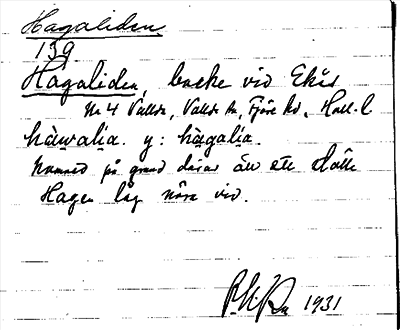 Hagaliden
139.
Hagaliden, backe vid Ekås
No 4 Valldа, Vallda sn, Fjäre hd, Hall. l
hàwalia. y: hàgalia.
Namned på grund därav att ett ställe
Hagen låg nära vid.
1931